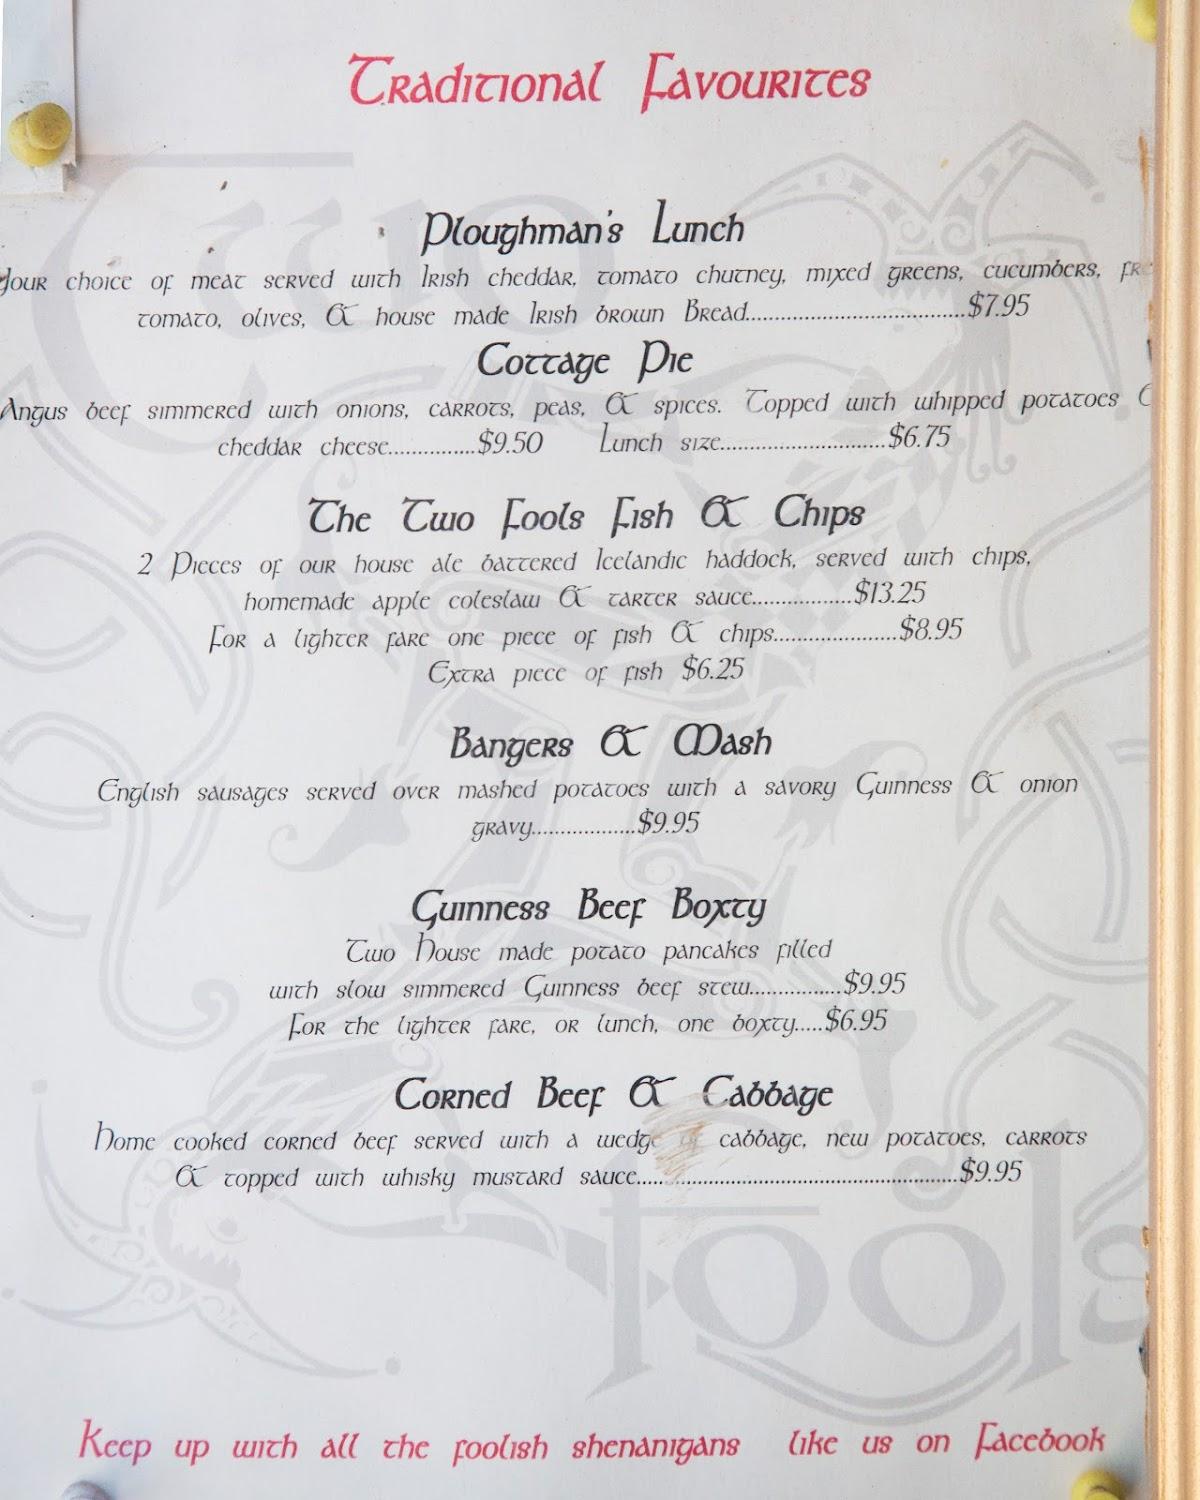 Traditional Favourites
Ploughman's Lunch
Your choice of meat served with Irish cheddar, tomato chutney, mixed greens, cucumbers,
tomato, olives, & house made Irish brown Bread...................................$7.95
Cottage Pie
Angus beef simmered with onions, carrots, peas, & spices. Topped with whipped potatoes
cheddar cheese..............$9.50 Lunch size..........................$6.75
The Two Fools Fish & Chips
2 Pieces of our house ale battered Icelandic haddock, served with chips,
homemade apple coleslaw & tarter sauce................$13.25
For a lighter fare one piece of fish & chips....................$8.95
Extra piece of fish $6.25
Bangers & Mash
English sausages served over mashed potatoes with a savory Guinness & onion
gravy.................$9.95
Guinness Beef Boxty
Two House made potato pancakes filled
with slow simmered Guinness beef stew...............$9.95
For the lighter fare, or lunch, one boxty.....$6.95
Corned Beef & Cabbage
Home cooked corned beef served with a wedge of cabbage, new potatoes, carrots
& topped with whisky mustard sauce....................................................$9.95
Two
Fools
Keep up with all the foolish shenanigans like us on Facebook